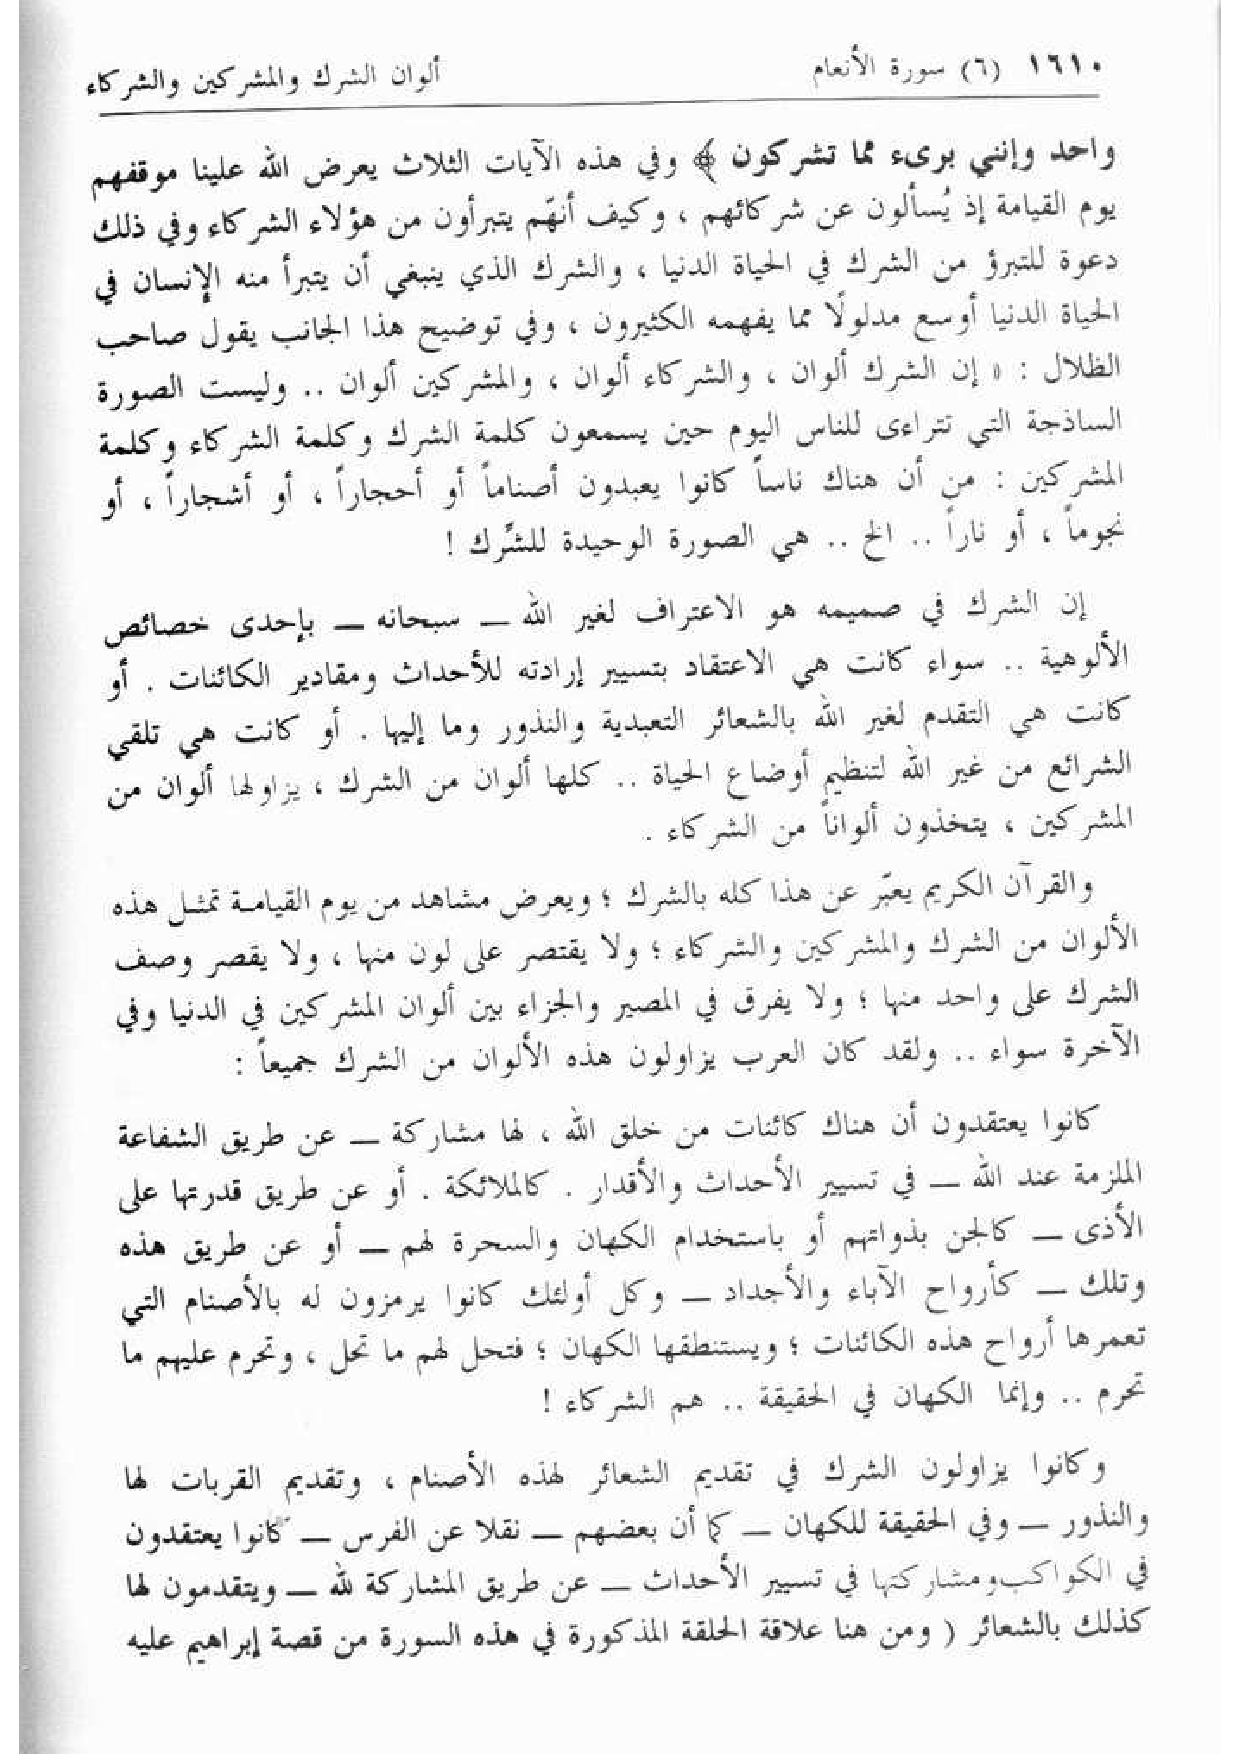 ١٦١٠ (٦) سورة الأنعام ألوان الشرك والمشركين والشركاء
واحد وإنني برىء مما تشركون ﴾ وفي هذه الآيات الثلاث يعرض الله علينا موقفهم
يوم القيامة إذ يُسألون عن شركائهم ، وكيف أنهّم يتبرأون من هؤلاء الشركاء وفي ذلك
دعوة للتبرؤ من الشرك في الحياة الدنيا ، والشرك الذي ينبغي أن يتبرأ منه الإنسان في
الحياة الدنيا أوسع مدلولًا مما يفهمه الكثيرون ، وفي توضيح هذا الجانب يقول صاحب
الظلال : « إن الشرك ألوان ، والشركاء ألوان ، والمشركين ألوان .. وليست الصورة
الساذجة التي تتراءى للناس اليوم حين يسمعون كلمة الشرك وكلمة الشركاء وكلمة
المشركين : من أن هناك ناساً كانوا يعبدون أصناماً أو أحجاراً ، أو أشجاراً ، أو
نجوماً ، أو ناراً .. الخ .. هي الصورة الوحيدة للشّرك !
إن الشرك في صميمه هو الاعتراف لغير الله ــ سبحانه ــ بإحدى خصائص
الألوهية .. سواء كانت هي الاعتقاد بتسيير إرادته للأحداث ومقادير الكائنات . أو
كانت هي التقدم لغير الله بالشعائر التعبدية والنذور وما إليها . أو كانت هي تلقي
الشرائع من غير الله لتنظيم أوضاع الحياة .. كلها ألوان من الشرك ، يزاولها ألوان من
المشركين ، يتخذون ألواناً من الشركاء .
والقرآن الكريم يعبّر عن هذا كله بالشرك ؛ ويعرض مشاهد من يوم القيامة تمثل هذه
الألوان من الشرك والمشركين والشركاء ؛ ولا يقتصر على لون منها ، ولا يقصر وصف
الشرك على واحد منها ؛ ولا يفرق في المصير والجزاء بين ألوان المشركين في الدنيا وفي
الآخرة سواء .. ولقد كان العرب يزاولون هذه الألوان من الشرك جميعاً :
كانوا يعتقدون أن هناك كائنات من خلق الله ، لها مشاركة ــ عن طريق الشفاعة
الملزمة عند الله ــ في تسيير الأحداث والأقدار . كالملائكة . أو عن طريق قدرتها على
الأذى ــ كالجن بذواتهم أو باستخدام الكهان والسحرة لهم ــ أو عن طريق هذه
وتلك ــ كأرواح الآباء والأجداد ــ وكل أولئك كانوا يرمزون له بالأصنام التي
تعمرها أرواح هذه الكائنات ؛ ويستنطقها الكهان ؛ فتحل لهم ما تحل ، وتحرم عليهم ما
تحرم .. وإنما الكهان في الحقيقة .. هم الشركاء !
وكانوا يزاولون الشرك في تقديم الشعائر لهذه الأصنام ، وتقديم القربات لها
والنذور ــ وفي الحقيقة للكهان ــ كما أن بعضهم ــ نقلا عن الفرس ــ كانوا يعتقدون
في الكواكب ومشاركتها في تسيير الأحداث ــ عن طريق المشاركة لله ــ ويتقدمون لها
كذلك بالشعائر ( ومن هنا علاقة الحلقة المذكورة في هذه السورة من قصة إبراهيم عليه